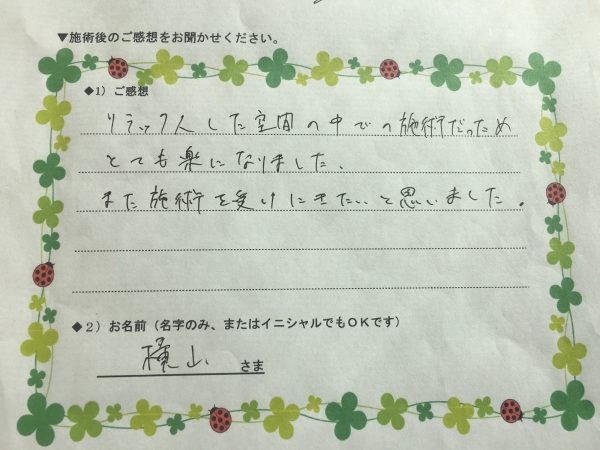 ▼施術後のご感想をお聞かせください。
◆1）ご感想
リラックスした空間の中での施術だったため
とても楽になりました、
また施術を受けにきたいと思いました。
◆2）お名前（名字のみ、またはイニシャルでもＯＫです）
横山 さま